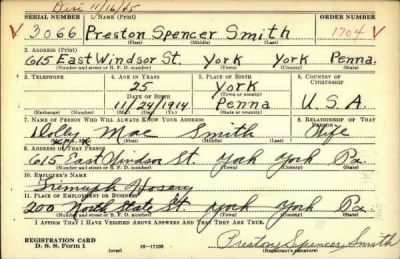 11/16/65
SERIAL NUMBER 1. NAME (Print) ORDER NUMBER
3066 Preston Spencer Smith 1704
(First) (Middle) (Last)
2. ADDRESS (Print)
615 East Windsor St. York York Penna.
(Number and street or R. F. D. number) (Town) (County) (State)
3. TELEPHONE 4. AGE IN YEARS 5. PLACE OF BIRTH 6. COUNTRY OF CITIZENSHIP
25 York
(Town or county)
DATE OF BIRTH
11/24/1914 Penna U.S.A.
(Exchange) (Number) (Mo.) (Day) (Yr.) (State or country)
7. NAME OF PERSON WHO WILL ALWAYS KNOW YOUR ADDRESS 8. RELATIONSHIP OF THAT PERSON
Dolly Mae Smith Wife
(Mr., Mrs., Miss) (First) (Middle) (Last)
9. ADDRESS OF THAT PERSON
615 East Windsor St. York York Pa.
(Number and street or R. F. D. number) (Town) (County) (State)
10. EMPLOYER'S NAME
Hosery
11. PLACE OF EMPLOYMENT OR BUSINESS
200 North State St. York York Pa.
(Number and street or R. F. D. number) (Town) (County) (State)
I AFFIRM THAT I HAVE VERIFIED ABOVE ANSWERS AND THAT THEY ARE TRUE.
REGISTRATION CARD
D. S. S. Form 1 (over) 16-17105 Preston Spencer Smith
(Registrant's signature)